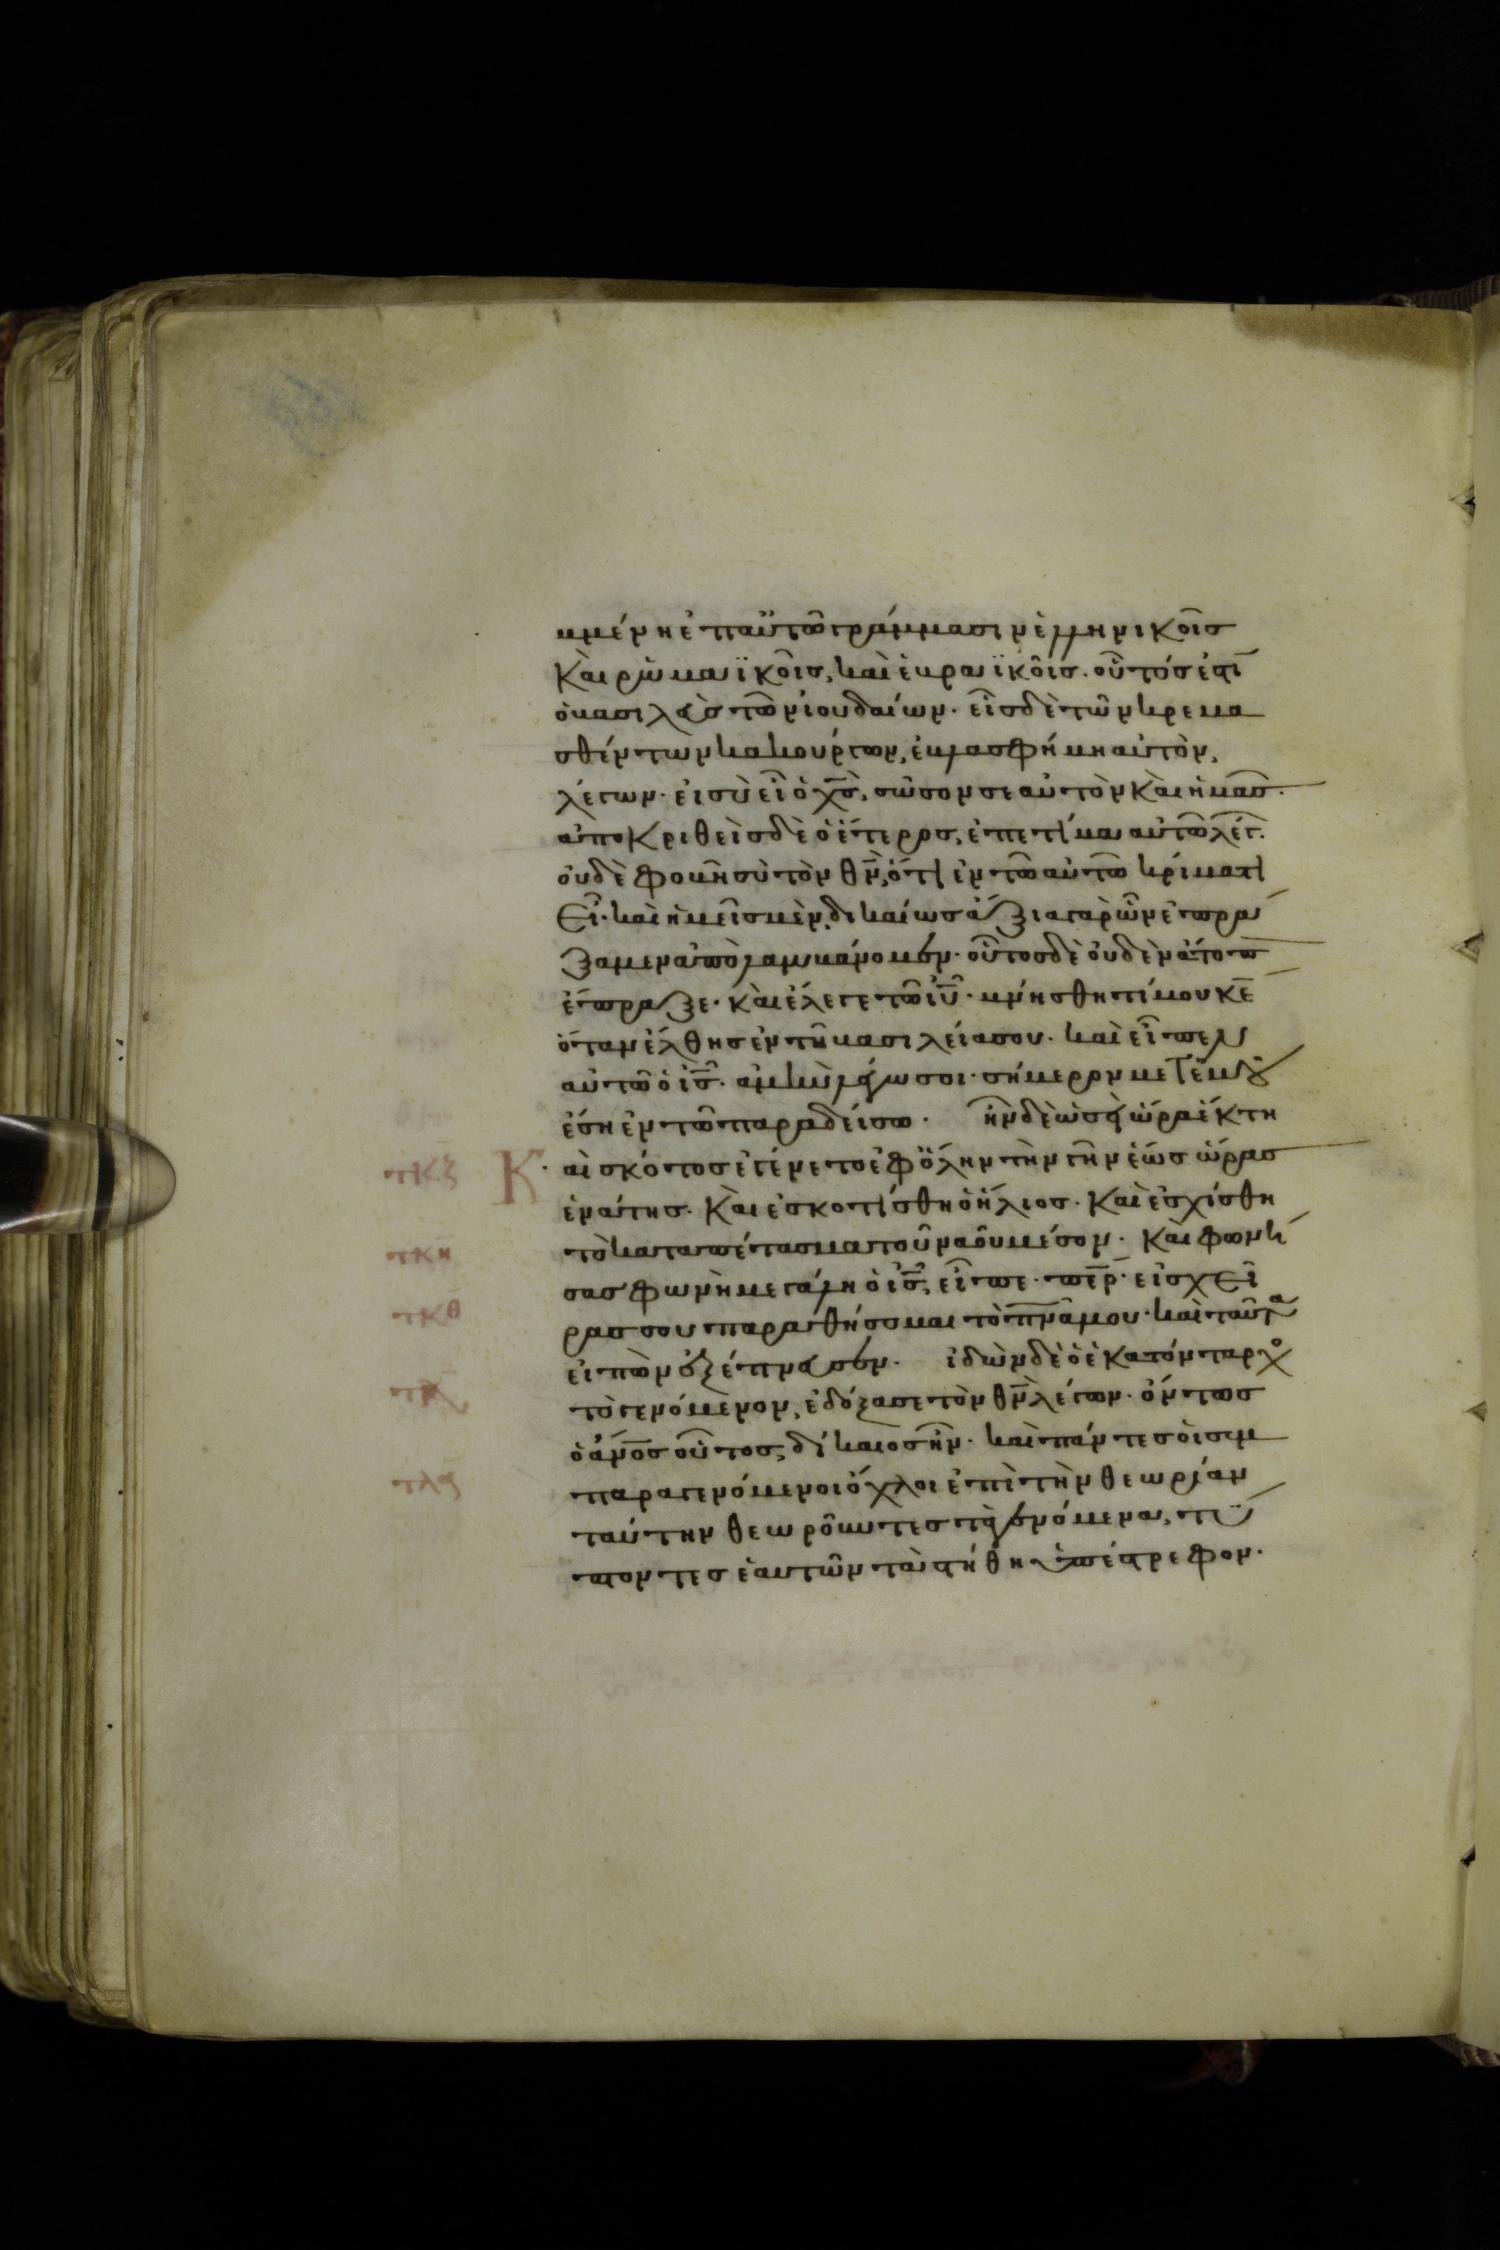 μμένη ἐπ αὐτῶ γράμμασιν ἑλληνικοῖς
Καὶ ρωμαϊκοῖς, καὶ ἑβραϊκοῖς. οὗτός ἐστὶ
ὁ βασιλεὺς τῶν ἰουδαίων. εἷς δὲ τῶν κρεμα
σθέντων κακούργων, ἐβλασφήμη αὐτὸν,
λέγων. εἰ σὺ εἶ ὁ χ̅ς̅, σῶσον σεαυτὸν Καὶ ἡμᾶς.
ἀποκριθεὶς δὲ ὁ ἕτερος, ἐπετίμα αὐτῶ λέγ.
οὐδὲ φοβῆ σὺ τὸν θ̅ν̅, ὅτι ἐν τῶ αὐτῶ κρίματι
εἶ. καὶ ἡμεῖς μὲν, δικαίως ἄξια γὰρ ὧν ἐπρά
ξαμεν ἀπολαμβάνομεν. οὗτος δὲ οὐδὲν ἄτοπ
ἔπραξε. Καὶ ἔλεγε τῶ ι̅υ̅. μνήσθητί μου κ̅ε̅
ὅταν ἔλθης ἐν τῆ βασιλεία σου. καὶ εἶπεν
αὐτῶ ὁ ι̅ς̅. ἀμὴν λέγω σοι. σήμερον μετ ἐμοῦ
ἔση ἐν τῶ παραδείσω. ἦν δὲ ὡσεὶ ὥρα ἕκτη
τκζ Κ. αὶ σκότος ἐγένετο ἐφ ὅλην τὴν γῆν ἕως ὥρας
ἐνάτης. Καὶ ἐσκοτίσθη ὁ ἥλιος. Καὶ ἐσχίσθη
τκη τὸ καταπέτασμα τοῦ ναοῦ μέσον. Καὶ φωνή
σας φωνῆ μεγάλη ὁ ι̅ς̅, εἶπε. π̅ε̅ρ̅. εἰς χεῖ
τκθ ρας σου παραθήσομαι τὸ π̅ν̅ᾶ μου. καὶ ταῦτα
εἰπὼν ἐξέπνευσεν. ἰδὼν δὲ ὁ ἑκατόνταρχο
τλ τὸ γενόμενον, ἐδόξασε τὸν θ̅ν̅ λέγων. ὄντως
ὁ ἄνο̅ς οὗτος, δίκαιος ἦν. καὶ πάντες οἱ συμ
τλα παραγενόμενοι ὄχλοι ἐπὶ τὴν θεωρίαν
ταύτην θεωροῦντες τὰ γενόμενα, τύ
πτοντες ἑαυτῶν τὰ στήθη ὑπέστρεφον.